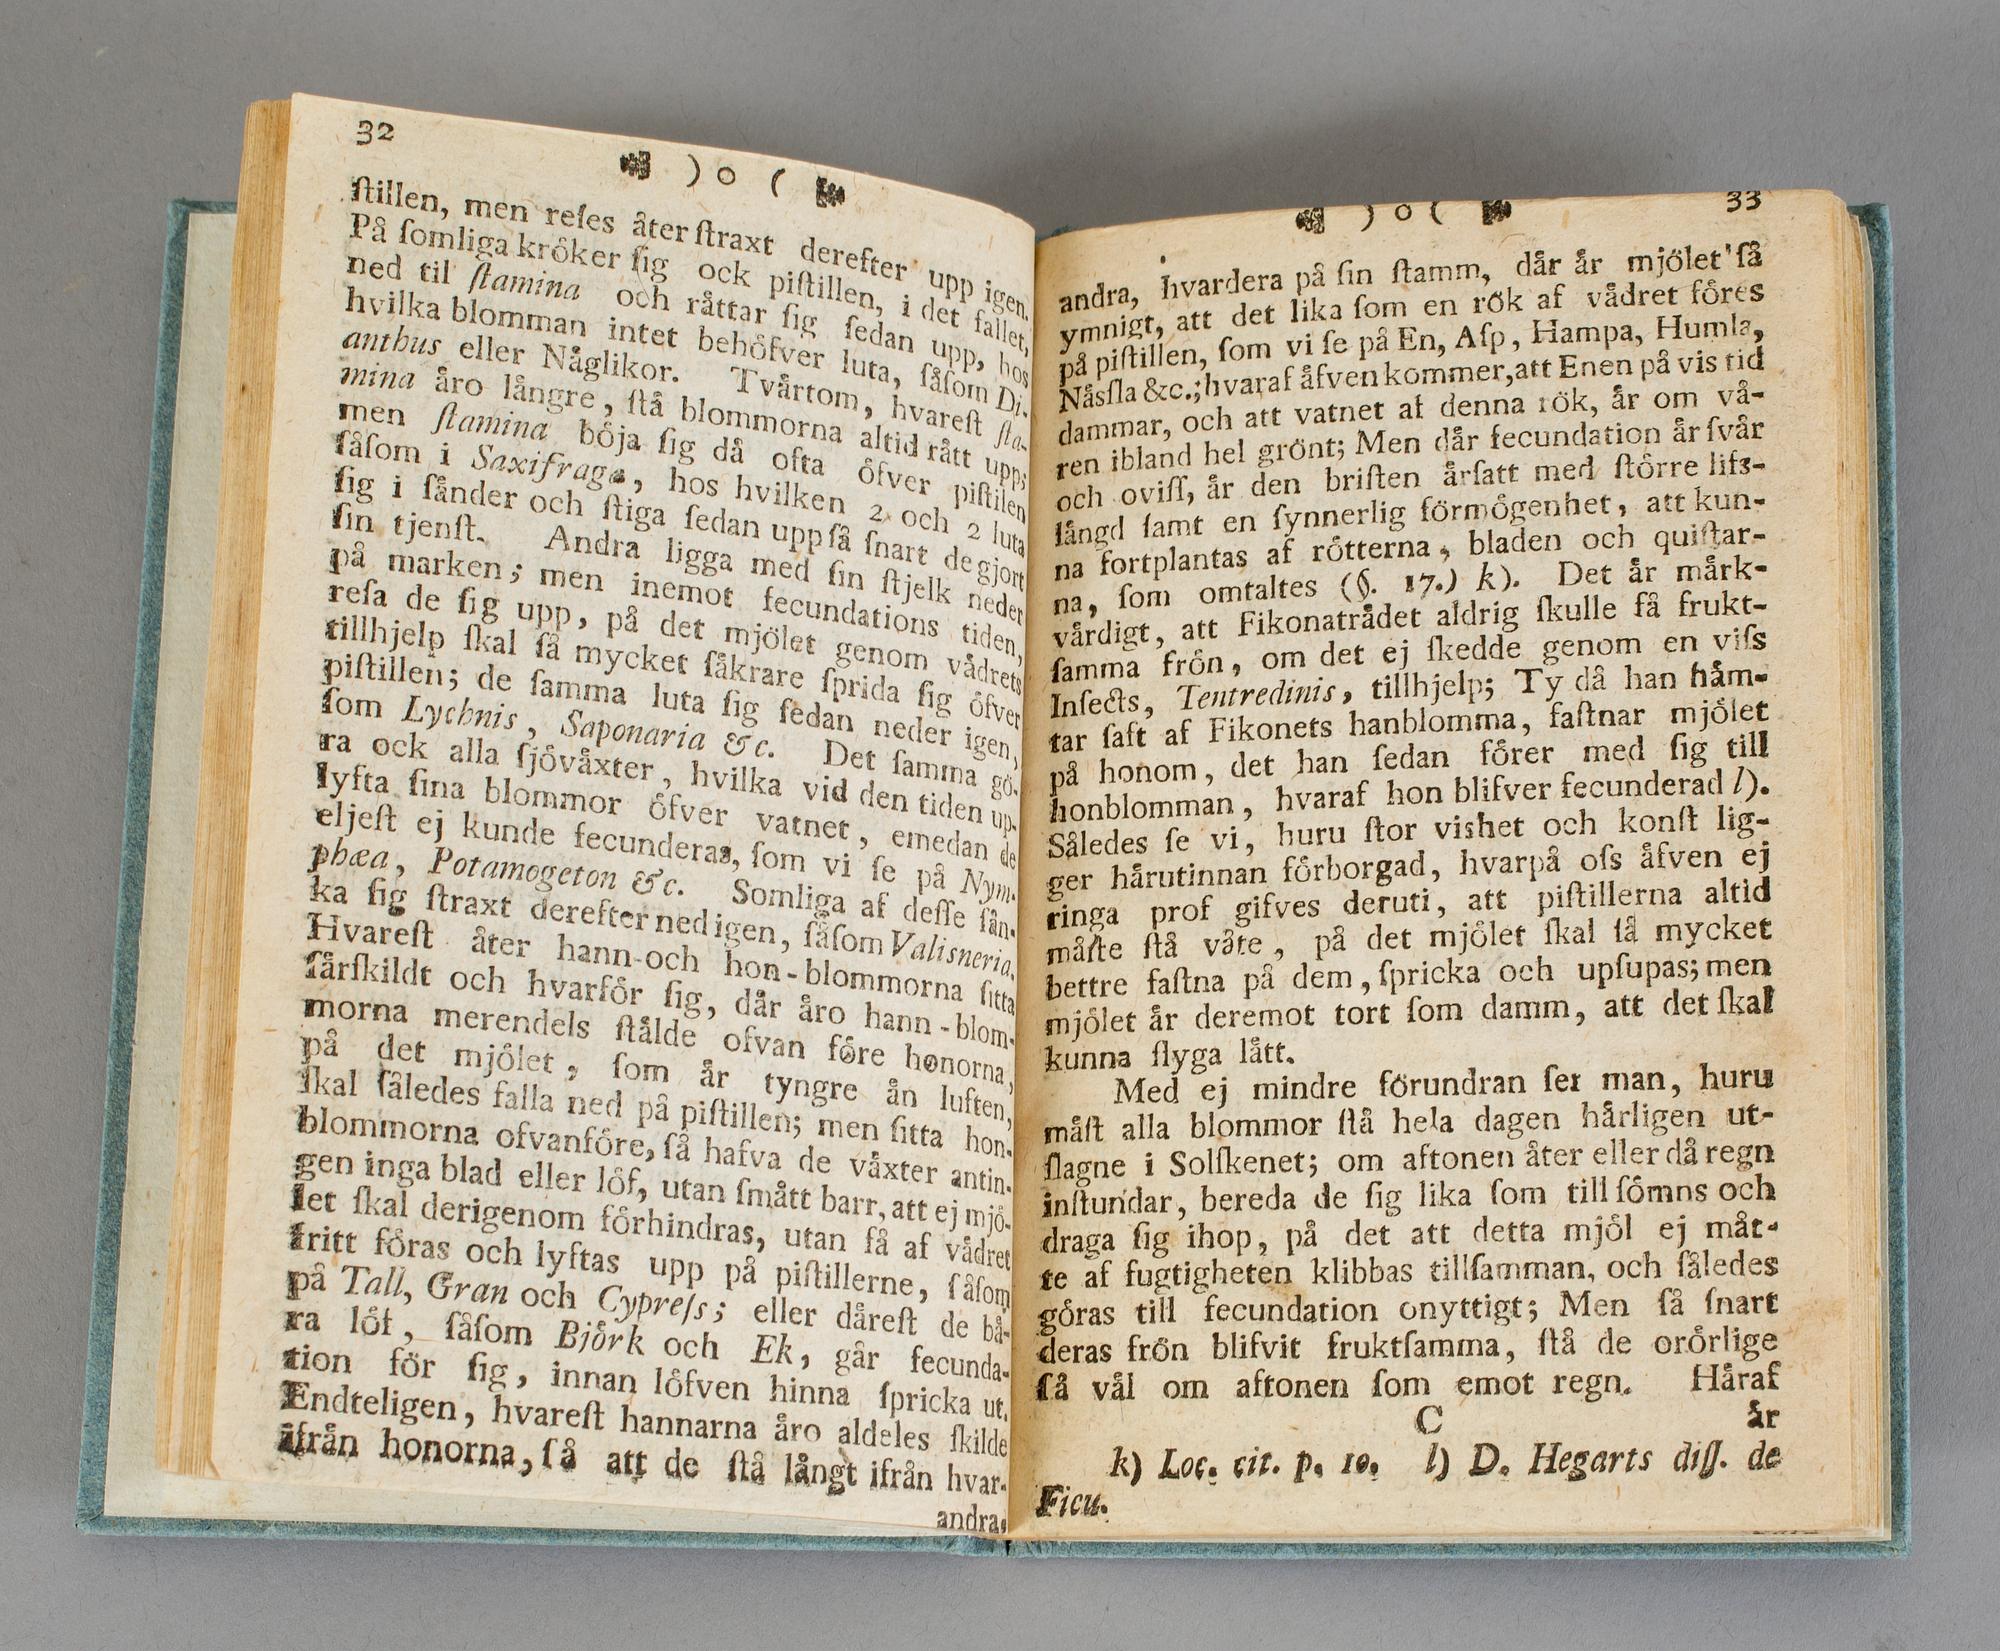 32
) o (
ſtillen, men reſes åter ſtraxt derefter upp igen.
På ſomliga kröker ſig ock piſtillen, i det fallet,
ned til ſtamina och råttar ſig ſedan upp, hos
hvilka blomman intet behöfver luta, ſåſom Di-
anthus eller Någlikor. Tvårtom, hvareſt ſta-
mina åro långre, ſtå blommorna altid rått upp;
men ſtamina böja ſig då ofta öfver piſtilen
ſåſom i Saxifraga, hos hvilken 2 och 2 luta
ſig i ſånder och ſtiga ſedan upp ſå ſnart de gjort
ſin tjenſt. Andra ligga med ſin ſtjelk neder
på marken; men inemot fecundations tiden,
reſa de ſig upp, på det mjölet genom vådrets
tillhjelp ſkal ſå mycket ſåkrare ſprida ſig öfver
piſtillen; de ſamma luta ſig ſedan neder igen,
ſom Lychnis, Saponaria &c. Det ſamma gö-
ra ock alla ſjövåxter, hvilka vid den tiden up-
lyfta ſina blommor öfver vatnet, emedan de
eljeſt ej kunde fecunderas, ſom vi ſe på Nym-
phæa, Potamogeton &c. Somliga af deſſe ſån-
ka ſig ſtraxt derefter ned igen, ſåſom Valisneria.
Hvareſt åter hann-och hon-blommorna ſitta
ſårſkildt och hvarför ſig, dår åro hann-blom-
morna merendels ſtålde ofvan före honorna,
på det mjölet, ſom år tyngre ån luften,
ſkal ſåledes falla ned på piſtillen; men ſitta hon-
blommorna ofvanföre, ſå hafva de våxter antin-
gen inga blad eller löf, utan ſmått barr, att ej mjö-
let ſkal derigenom förhindras, utan få af vådret
fritt föras och lyftas upp på piſtillerne, ſåſom
på Tall, Gran och Cypreſs; eller dåreſt de bå-
ra löf, ſåſom Björk och Ek, går fecunda-
tion för ſig, innan löfven hinna ſpricka ut.
Endteligen, hvareſt hannarna åro aldeles ſkilde
ifrån honorna, ſå att de ſtå långt ifrån hvar-
andra,
) o (
33
andra, hvardera på ſin ſtamm, dår år mjölet ſå
ymnigt, att det lika ſom en rök af vådret föres
på piſtillen, ſom vi ſe på En, Aſp, Hampa, Humla,
Nåsſla &c.; hvaraf åfven kommer, att Enen på vis tid
dammar, och att vatnet af denna rök, år om vå-
ren ibland hel grönt; Men dår fecundation år ſvår
och oviſſ, år den briſten årſatt med ſtörre lifs-
långd ſamt en ſynnerlig förmögenhet, att kun-
na fortplantas af rötterna, bladen och quiſtar-
na, ſom omtaltes (§. 17.) k). Det år mårk-
vårdigt, att Fikonatrådet aldrig ſkulle få frukt-
ſamma frön, om det ej ſkedde genom en viſs
Inſects, Tentredinis, tillhjelp; Ty då han håm-
tar ſaft af Fikonets hanblomma, faſtnar mjölet
på honom, det han ſedan förer med ſig till
honblomman, hvaraf hon blifver fecunderad l).
Således ſe vi, huru ſtor vishet och konſt lig-
ger hårutinnan förborgad, hvarpå oſs åfven ej
ringa prof gifves deruti, att piſtillerna altid
måſte ſtå våte, på det mjölet ſkal ſå mycket
bettre faſtna på dem, ſpricka och upſupas; men
mjölet år deremot tort ſom damm, att det ſkal
kunna flyga lått.
Med ej mindre förundran ſer man, huru
måſt alla blommor ſtå hela dagen hårligen ut-
ſlagne i Solſkenet; om aftonen åter eller då regn
inſtundar, bereda de ſig lika ſom till ſömns och
draga ſig ihop, på det att detta mjöl ej måt-
te af fugtigheten klibbas tillſamman, och ſåledes
göras till fecundation onyttigt; Men ſå ſnart
deras frön blifvit fruktſamma, ſtå de orörlige
ſå vål om aftonen ſom emot regn. Håraf
C år
k) Loc. cit. p. 10. l) D. Hegarts diſſ. de
Ficu.